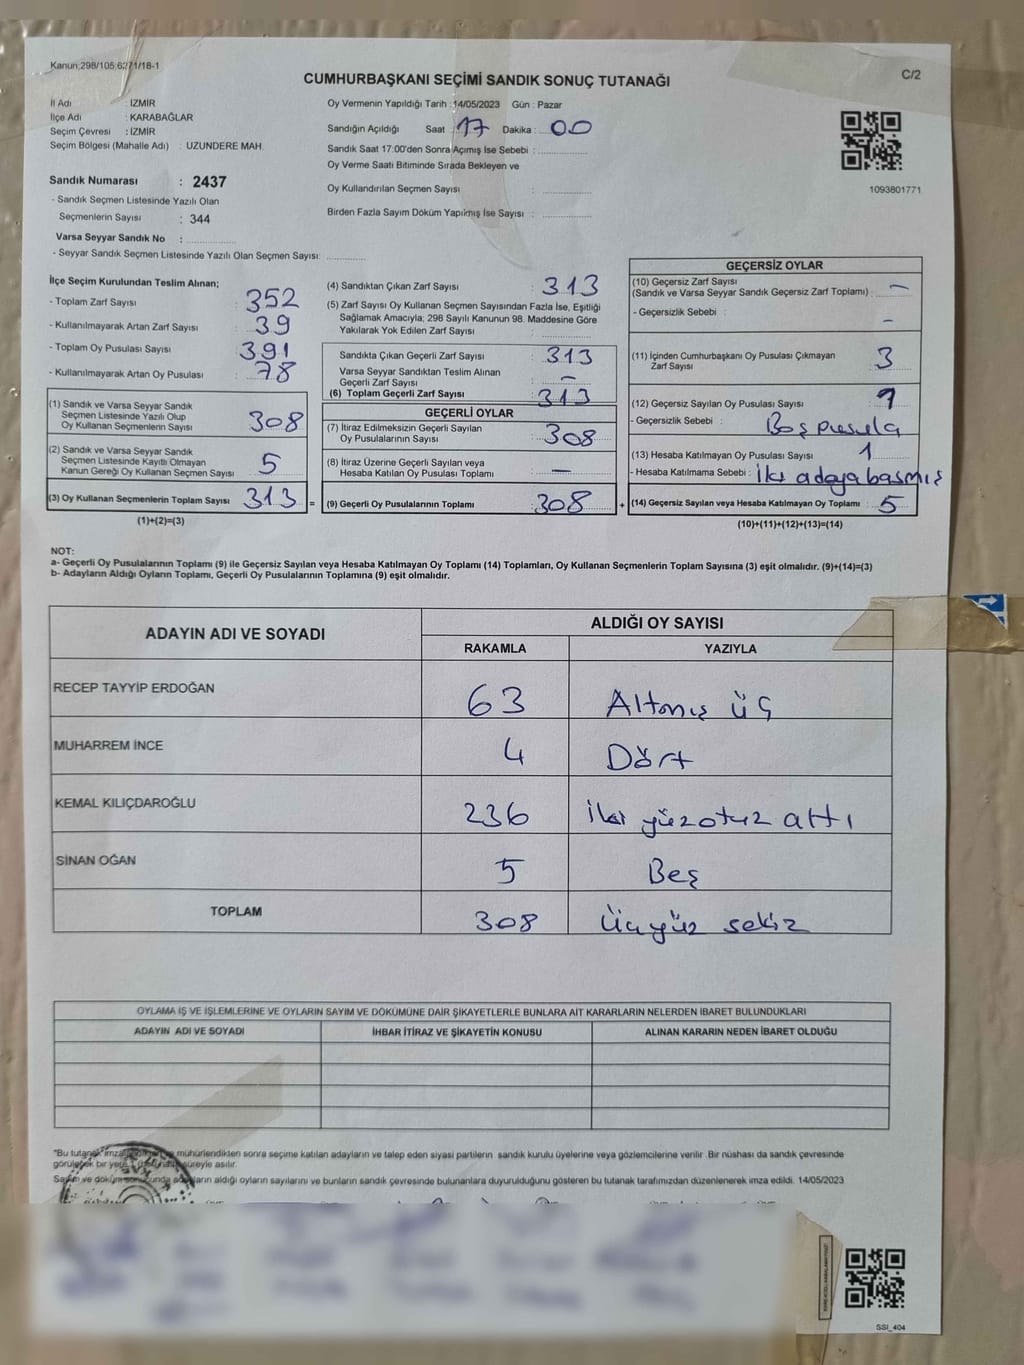 Kanun:298/105;6271/18-1
C/2
CUMHURBAŞKANI SEÇİMİ SANDIK SONUÇ TUTANAĞI
İl Adı : İZMİR
İlçe Adı : KARABAĞLAR
Seçim Çevresi : İZMİR
Seçim Bölgesi (Mahalle Adı) : UZUNDERE MAH.
Sandık Numarası : 2437
- Sandık Seçmen Listesinde Yazılı Olan
Seçmenlerin Sayısı : 344
Varsa Seyyar Sandık No :
- Seyyar Sandık Seçmen Listesinde Yazılı Olan Seçmen Sayısı:
Oy Vermenin Yapıldığı Tarih : 14/05/2023 Gün : Pazar
Sandığın Açıldığı Saat : 17 Dakika : 00
Sandık Saat 17:00'den Sonra Açılmış İse Sebebi :
Oy Verme Saati Bitiminde Sırada Bekleyen ve
Oy Kullandırılan Seçmen Sayısı :
Birden Fazla Sayım Döküm Yapılmış İse Sayısı :
1093801771
İlçe Seçim Kurulundan Teslim Alınan;
- Toplam Zarf Sayısı : 352
- Kullanılmayarak Artan Zarf Sayısı : 39
- Toplam Oy Pusulası Sayısı : 391
- Kullanılmayarak Artan Oy Pusulası : 78
(1) Sandık ve Varsa Seyyar Sandık
Seçmen Listesinde Yazılı Olup
Oy Kullanan Seçmenlerin Sayısı : 308
(2) Sandık ve Varsa Seyyar Sandık
Seçmen Listesinde Kayıtlı Olmayan
Kanun Gereği Oy Kullanan Seçmen Sayısı : 5
(3) Oy Kullanan Seçmenlerin Toplam Sayısı : 313 =
(1)+(2)=(3)
(4) Sandıktan Çıkan Zarf Sayısı : 313
(5) Zarf Sayısı Oy Kullanan Seçmen Sayısından Fazla İse, Eşitliği
Sağlamak Amacıyla; 298 Sayılı Kanunun 98. Maddesine Göre
Yakılarak Yok Edilen Zarf Sayısı :
Sandıkta Çıkan Geçerli Zarf Sayısı : 313
Varsa Seyyar Sandıktan Teslim Alınan
Geçerli Zarf Sayısı : –
(6) Toplam Geçerli Zarf Sayısı : 313
GEÇERLİ OYLAR
(7) İtiraz Edilmeksizin Geçerli Sayılan
Oy Pusulalarının Sayısı : 308
(8) İtiraz Üzerine Geçerli Sayılan veya
Hesaba Katılan Oy Pusulası Toplamı : –
(9) Geçerli Oy Pusulalarının Toplamı : 308 +
GEÇERSİZ OYLAR
(10) Geçersiz Zarf Sayısı
(Sandık ve Varsa Seyyar Sandık Geçersiz Zarf Toplamı) : –
- Geçersizlik Sebebi : –
(11) İçinden Cumhurbaşkanı Oy Pusulası Çıkmayan
Zarf Sayısı : 3
(12) Geçersiz Sayılan Oy Pusulası Sayısı : 1
- Geçersizlik Sebebi : Boş pusula
(13) Hesaba Katılmayan Oy Pusulası Sayısı : 1
- Hesaba Katılmama Sebebi : İki adaya basmış
(14) Geçersiz Sayılan veya Hesaba Katılmayan Oy Toplamı : 5
(10)+(11)+(12)+(13)=(14)
NOT:
a- Geçerli Oy Pusulalarının Toplamı (9) ile Geçersiz Sayılan veya Hesaba Katılmayan Oy Toplamı (14) Toplamları, Oy Kullanan Seçmenlerin Toplam Sayısına (3) eşit olmalıdır. (9)+(14)=(3)
b- Adayların Aldığı Oyların Toplamı, Geçerli Oy Pusulalarının Toplamına (9) eşit olmalıdır.
ADAYIN ADI VE SOYADI
ALDIĞI OY SAYISI
RAKAMLA YAZIYLA
RECEP TAYYİP ERDOĞAN 63 Altmış üç
MUHARREM İNCE 4 Dört
KEMAL KILIÇDAROĞLU 236 İki yüz otuz altı
SİNAN OĞAN 5 Beş
TOPLAM 308 Üçyüz sekiz
OYLAMA İŞ VE İŞLEMLERİNE VE OYLARIN SAYIM VE DÖKÜMÜNE DAİR ŞİKAYETLERLE BUNLARA AİT KARARLARIN NELERDEN İBARET BULUNDUKLARI
ADAYIN ADI VE SOYADI İHBAR İTİRAZ VE ŞİKAYETİN KONUSU ALINAN KARARIN NEDEN İBARET OLDUĞU
"Bu tutanak mühürlendikten sonra seçime katılan adayların ve talep eden siyasi partilerin sandık kurulu üyelerine veya gözlemcilerine verilir .Bir nüshası da sandık çevresinde
görülebilecek bir yere süreyle asılır.
Sayım ve döküm sonucunda adayların aldığı oyların sayılarını ve bunların sandık çevresinde bulunanlara duyurulduğunu gösteren bu tutanak tarafımızdan düzenlenerek imza edildi. 14/05/2023
SSI_404